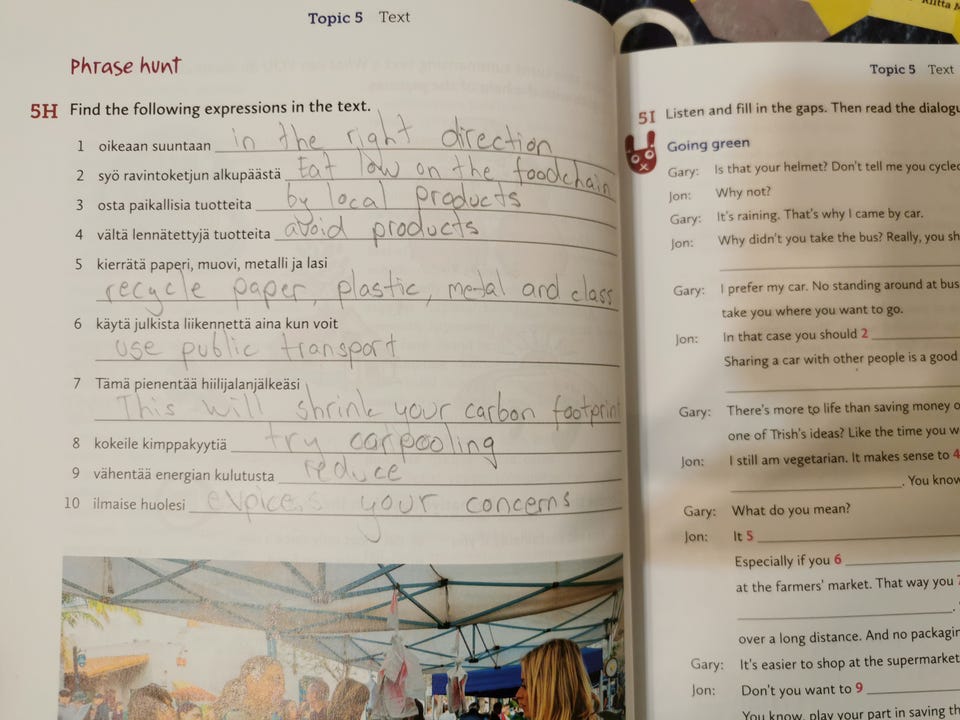 Riitta M
Topic 5 Text
Phrase hunt
5H Find the following expressions in the text.
1 oikeaan suuntaan in the right direction
2 syö ravintoketjun alkupäästä Eat low on the foodchain
3 osta paikallisia tuotteita by local products
4 vältä lennätettyjä tuotteita avoid products
5 kierrätä paperi, muovi, metalli ja lasi
recycle paper, plastic, metal and class
6 käytä julkista liikennettä aina kun voit
use public transport
7 Tämä pienentää hiilijalanjälkeäsi
This will shrink your carbon footprint
8 kokeile kimppakyytiä try carpooling
9 vähentää energian kulutusta reduce
10 ilmaise huolesi your concerns
Topic 5 Text
5I Listen and fill in the gaps. Then read the dialogu
Going green
Gary: Is that your helmet? Don't tell me you cycled
Jon: Why not?
Gary: It's raining. That's why I came by car.
Jon: Why didn't you take the bus? Really, you sh
Gary: I prefer my car. No standing around at bus
take you where you want to go.
Jon: In that case you should 2
Sharing a car with other people is a good
Gary: There's more to life than saving money o
one of Trish's ideas? Like the time you w
Jon: I still am vegetarian. It makes sense to 4
. You know
Gary: What do you mean?
Jon: It 5
Especially if you 6
at the farmers' market. That way you 7
.
over a long distance. And no packagin
Gary: It's easier to shop at the supermarket
Jon: Don't you want to 9
You know, play your part in saving th